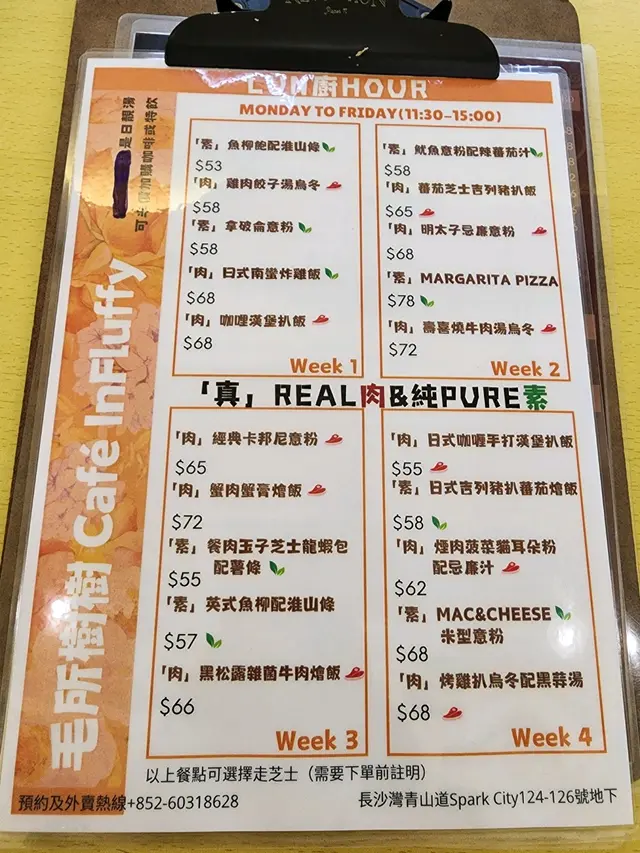 LUN廚HOUR
MONDAY TO FRIDAY(11:30-15:00)
是日靚湯
加購咖啡或特飲
毛所樹樹 Café InFluffy
「素」魚柳飽配淮山條
$53
「肉」雞肉餃子湯烏冬
$58
「素」拿破侖意粉
$58
「肉」日式南蠻炸雞飯
$68
「肉」咖哩漢堡扒飯
$68
Week 1
「素」魷魚意粉配辣蕃茄汁
$58
「肉」蕃茄芝士吉列豬扒飯
$65
「肉」明太子忌廉意粉
$68
「素」MARGARITA PIZZA
$78
「肉」壽喜燒牛肉湯烏冬
$72
Week 2
「真」REAL肉&純PURE素
「肉」經典卡邦尼意粉
$65
「肉」蟹肉蟹膏燴飯
$72
「素」餐肉玉子芝士龍蝦包
配薯條
$55
「素」英式魚柳配淮山條
$57
「肉」黑松露雜菌牛肉燴飯
$66
Week 3
「肉」日式咖喱手打漢堡扒飯
$55
「素」日式吉列豬扒蕃茄燴飯
$58
「肉」煙肉菠菜貓耳朵粉
配忌廉汁
$62
「素」MAC&CHEESE
米型意粉
$68
「肉」烤雞扒烏冬配黑蒜湯
$68
Week 4
以上餐點可選擇走芝士（需要下單前註明）
預約及外賣熱線+852-60318628
長沙灣青山道Spark City124-126號地下